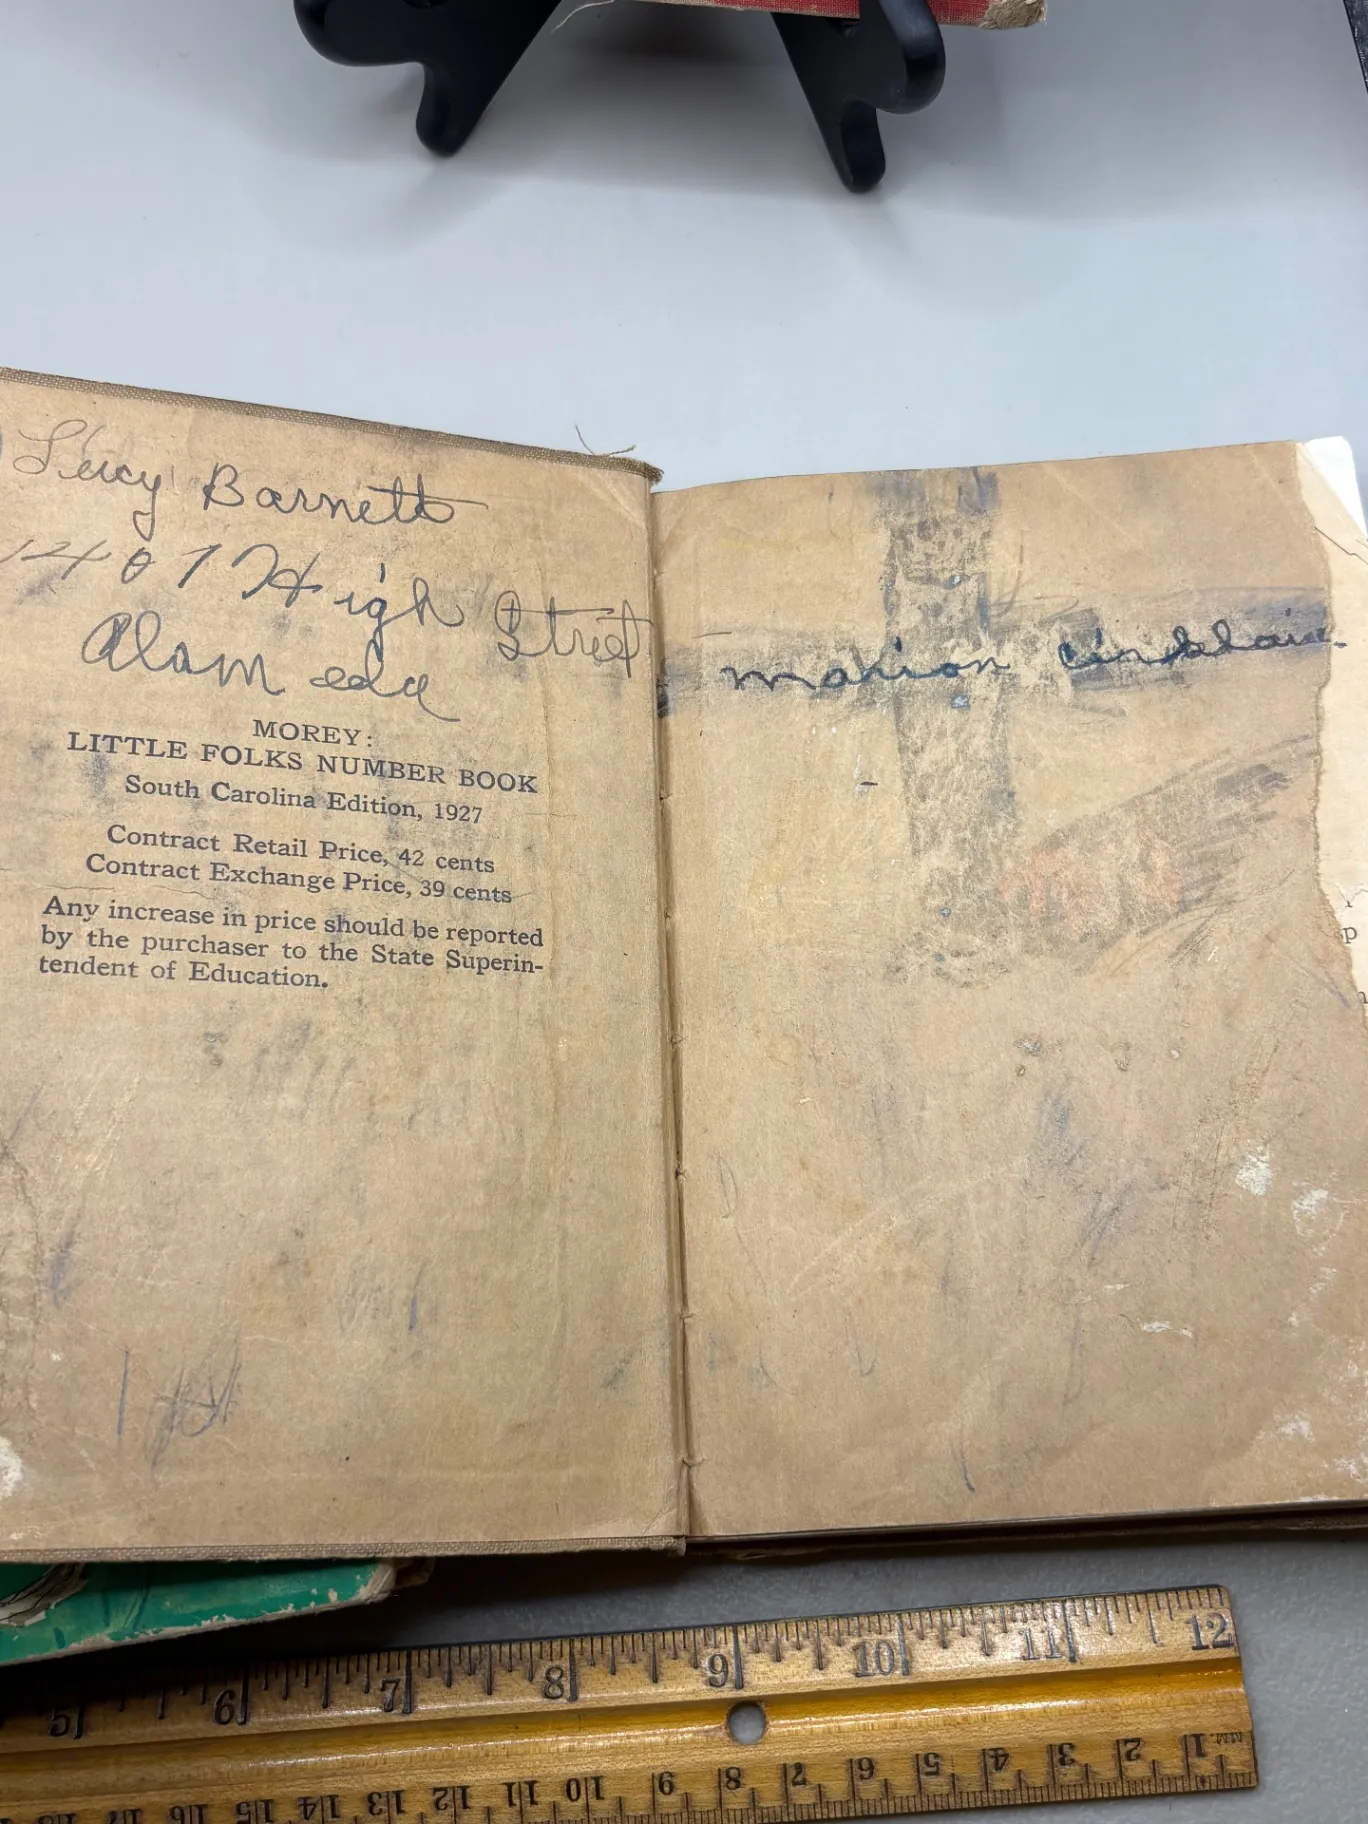 Lucy Barnett
1407 High Street
Alameda
MOREY:
LITTLE FOLKS NUMBER BOOK
South Carolina Edition, 1927
Contract Retail Price, 42 cents
Contract Exchange Price, 39 cents
Any increase in price should be reported
by the purchaser to the State Superin-
tendent of Education.
Marion
5 6 7 8 9 10 11 12
18 17 16 15 14 13 12 11 10 9 8 7 6 5 4 3 2 1 MM.